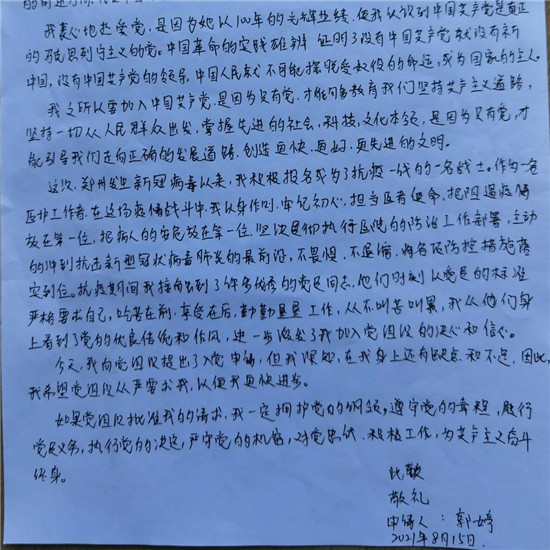 我衷心地热爱党,是因为她以100年的光辉业绩,使我认识到中国共产党是真正
的马克思列宁主义的党。中国革命的实践雄辩证明了没有中国共产党就没有新
中国,没有中国共产党的领导,中国人民就不可能摆脱受奴役的命运,成为国家的主人。
我之所以要加入中国共产党,是因为只有党,才能够教育我们坚持共产主义道路,
坚持一切从人民群众出发,掌握先进的社会,科技,文化本领,是因为只有党,才
能引导我们走向正确的发展道路,创造更快,更好,更先进的文明。
这次,郑州发生新冠病毒以来,我积极报名成为了抗疫一线的一名战士。作为一名
医护工作者,在这场疫情战斗中,我以身作则,牢记初心,担当医者使命,把阻遏疫情
放在第一位,把病人的安危放在第一位,坚决层仰执行医院的防治工作部署,主动
的冲到抗击新型冠状病毒肺炎的最前沿,不畏惧,不退缩,将各项防控措施落
实到位。抗疫期间我接触到了许多优秀的党员同志,他们时刻以党员的标准
严格要求自己,吃苦在前,享受在后,勤勤恳恳工作,从不叫苦叫累,我从他们身
上看到了党的优良传统和作风,进一步激发了我加入党组织的决心和信心。
今天,我向党组织提出了入党申请,但我深知,在我身上还有缺点和不足,因此,
我希望党组织从严要求我,以使我更快进步。
如果党组织批准我的请求,我一定拥护党的纲领,遵守党的章程,履行
党员义务,执行党的决定,严守党的机密,对党忠诚,积极工作,为共产主义奋斗
终身。
此致
敬礼
申请人:郭婷
2021年8月15日.